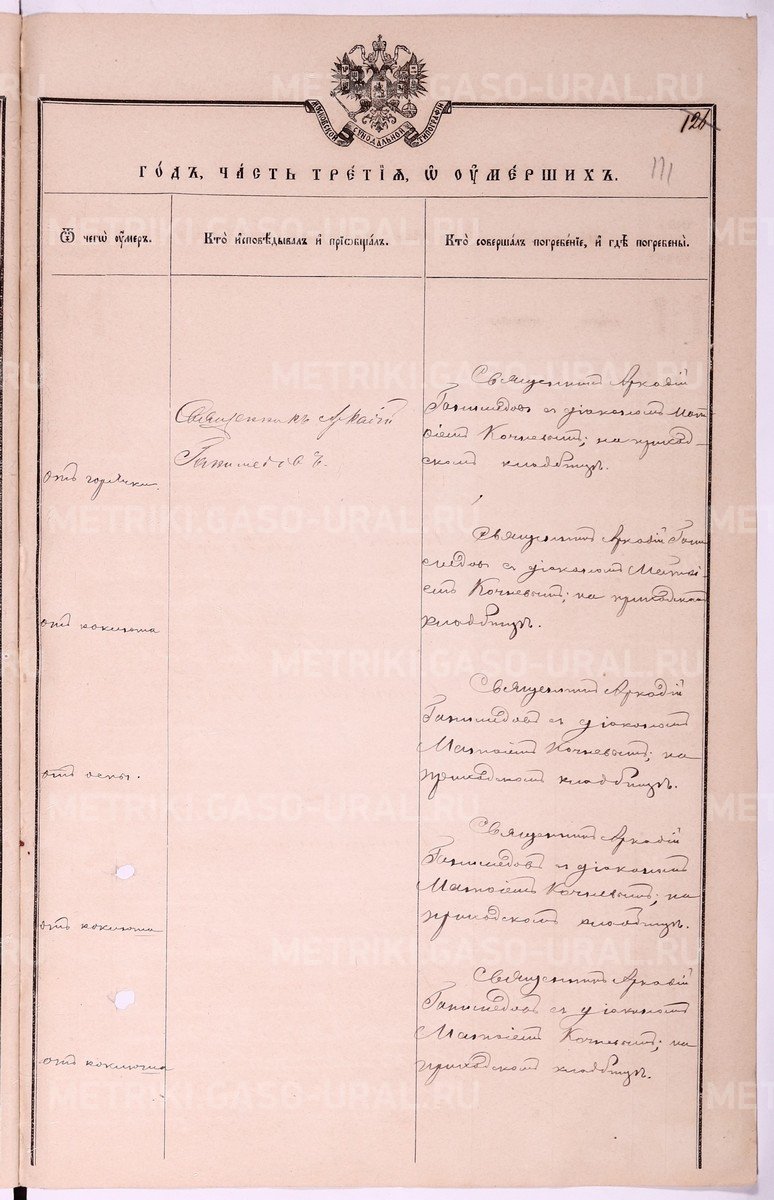 МОСКОВСКОЙ СѴНОДАЛЬНОЙ ТИПОГРАФІИ
126
111
ГОДЪ, ЧАСТЬ ТРЕТІЯ, Ѡ ОУМЕРШИХЪ.
Ѿ чегѡ оумеръ.
Кто исповѣдывалъ и пріѡбщалъ.
Кто совершалъ погребеніе, и гдѣ погребены.
отъ горячки.
Священникъ Аркадій
Ганимедовъ.
Священникъ Аркадій
Ганимедовъ съ діакономъ Мат-
ѳіемъ Кочневымъ; на приход-
скомъ кладбищѣ.
отъ коклюша
Священникъ Аркадій Гани-
медовъ съ діакономъ Матѳі-
емъ Кочневымъ; на приходскомъ
кладбищѣ.
отъ оспы.
Священникъ Аркадій
Ганимедовъ съ діакономъ
Матѳіемъ Кочневымъ; на
приходскомъ кладбищѣ.
отъ коклюша
Священникъ Аркадій
Ганимедовъ съ діакономъ
Матѳіемъ Кочневымъ; на
приходскомъ кладбищѣ.
отъ коклюша
Священникъ Аркадій
Ганимедовъ съ діакономъ
Матѳіемъ Кочневымъ; на
приходскомъ кладбищѣ.
METRIKI.GASO-URAL.RU